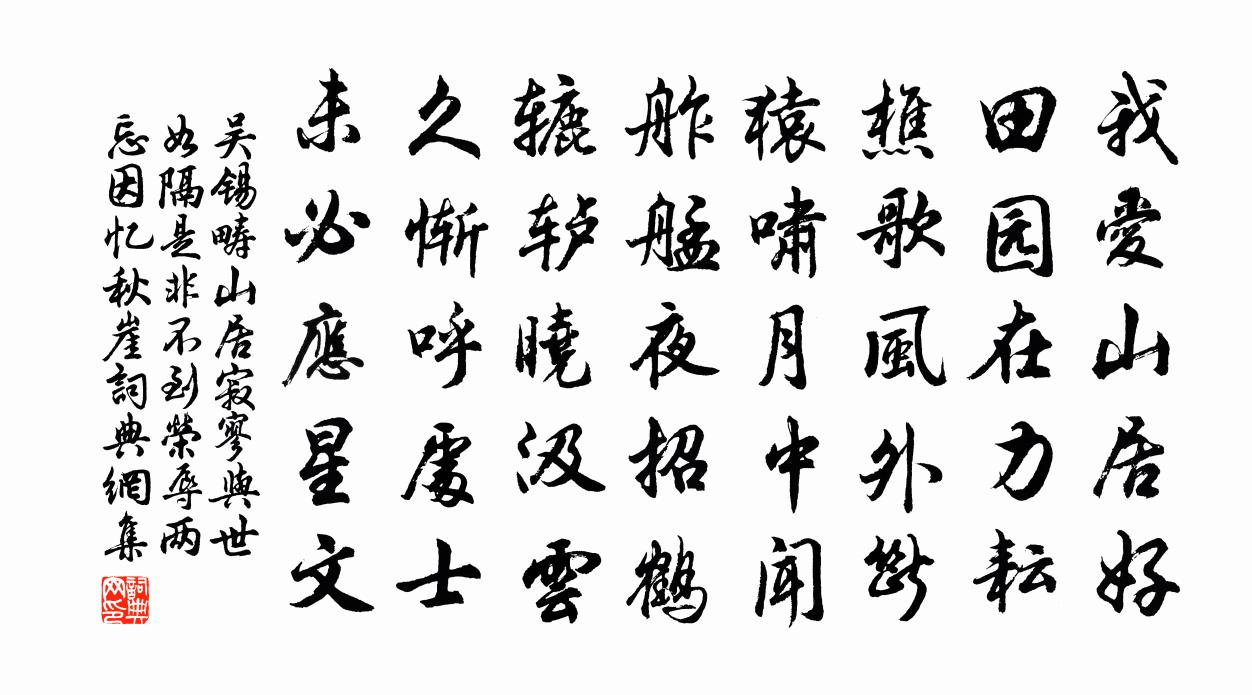 我愛山居好
田园在力耘
樵歌風外斷
猿嘯月中聞
舴艋夜招鶴
辘轳曉汲雲
久慚呼處士
未必應星文
吴錫疇山居寂寥與世
如隔是非不到榮辱两
忘因忆秋崖詞典網集
詞典
网印